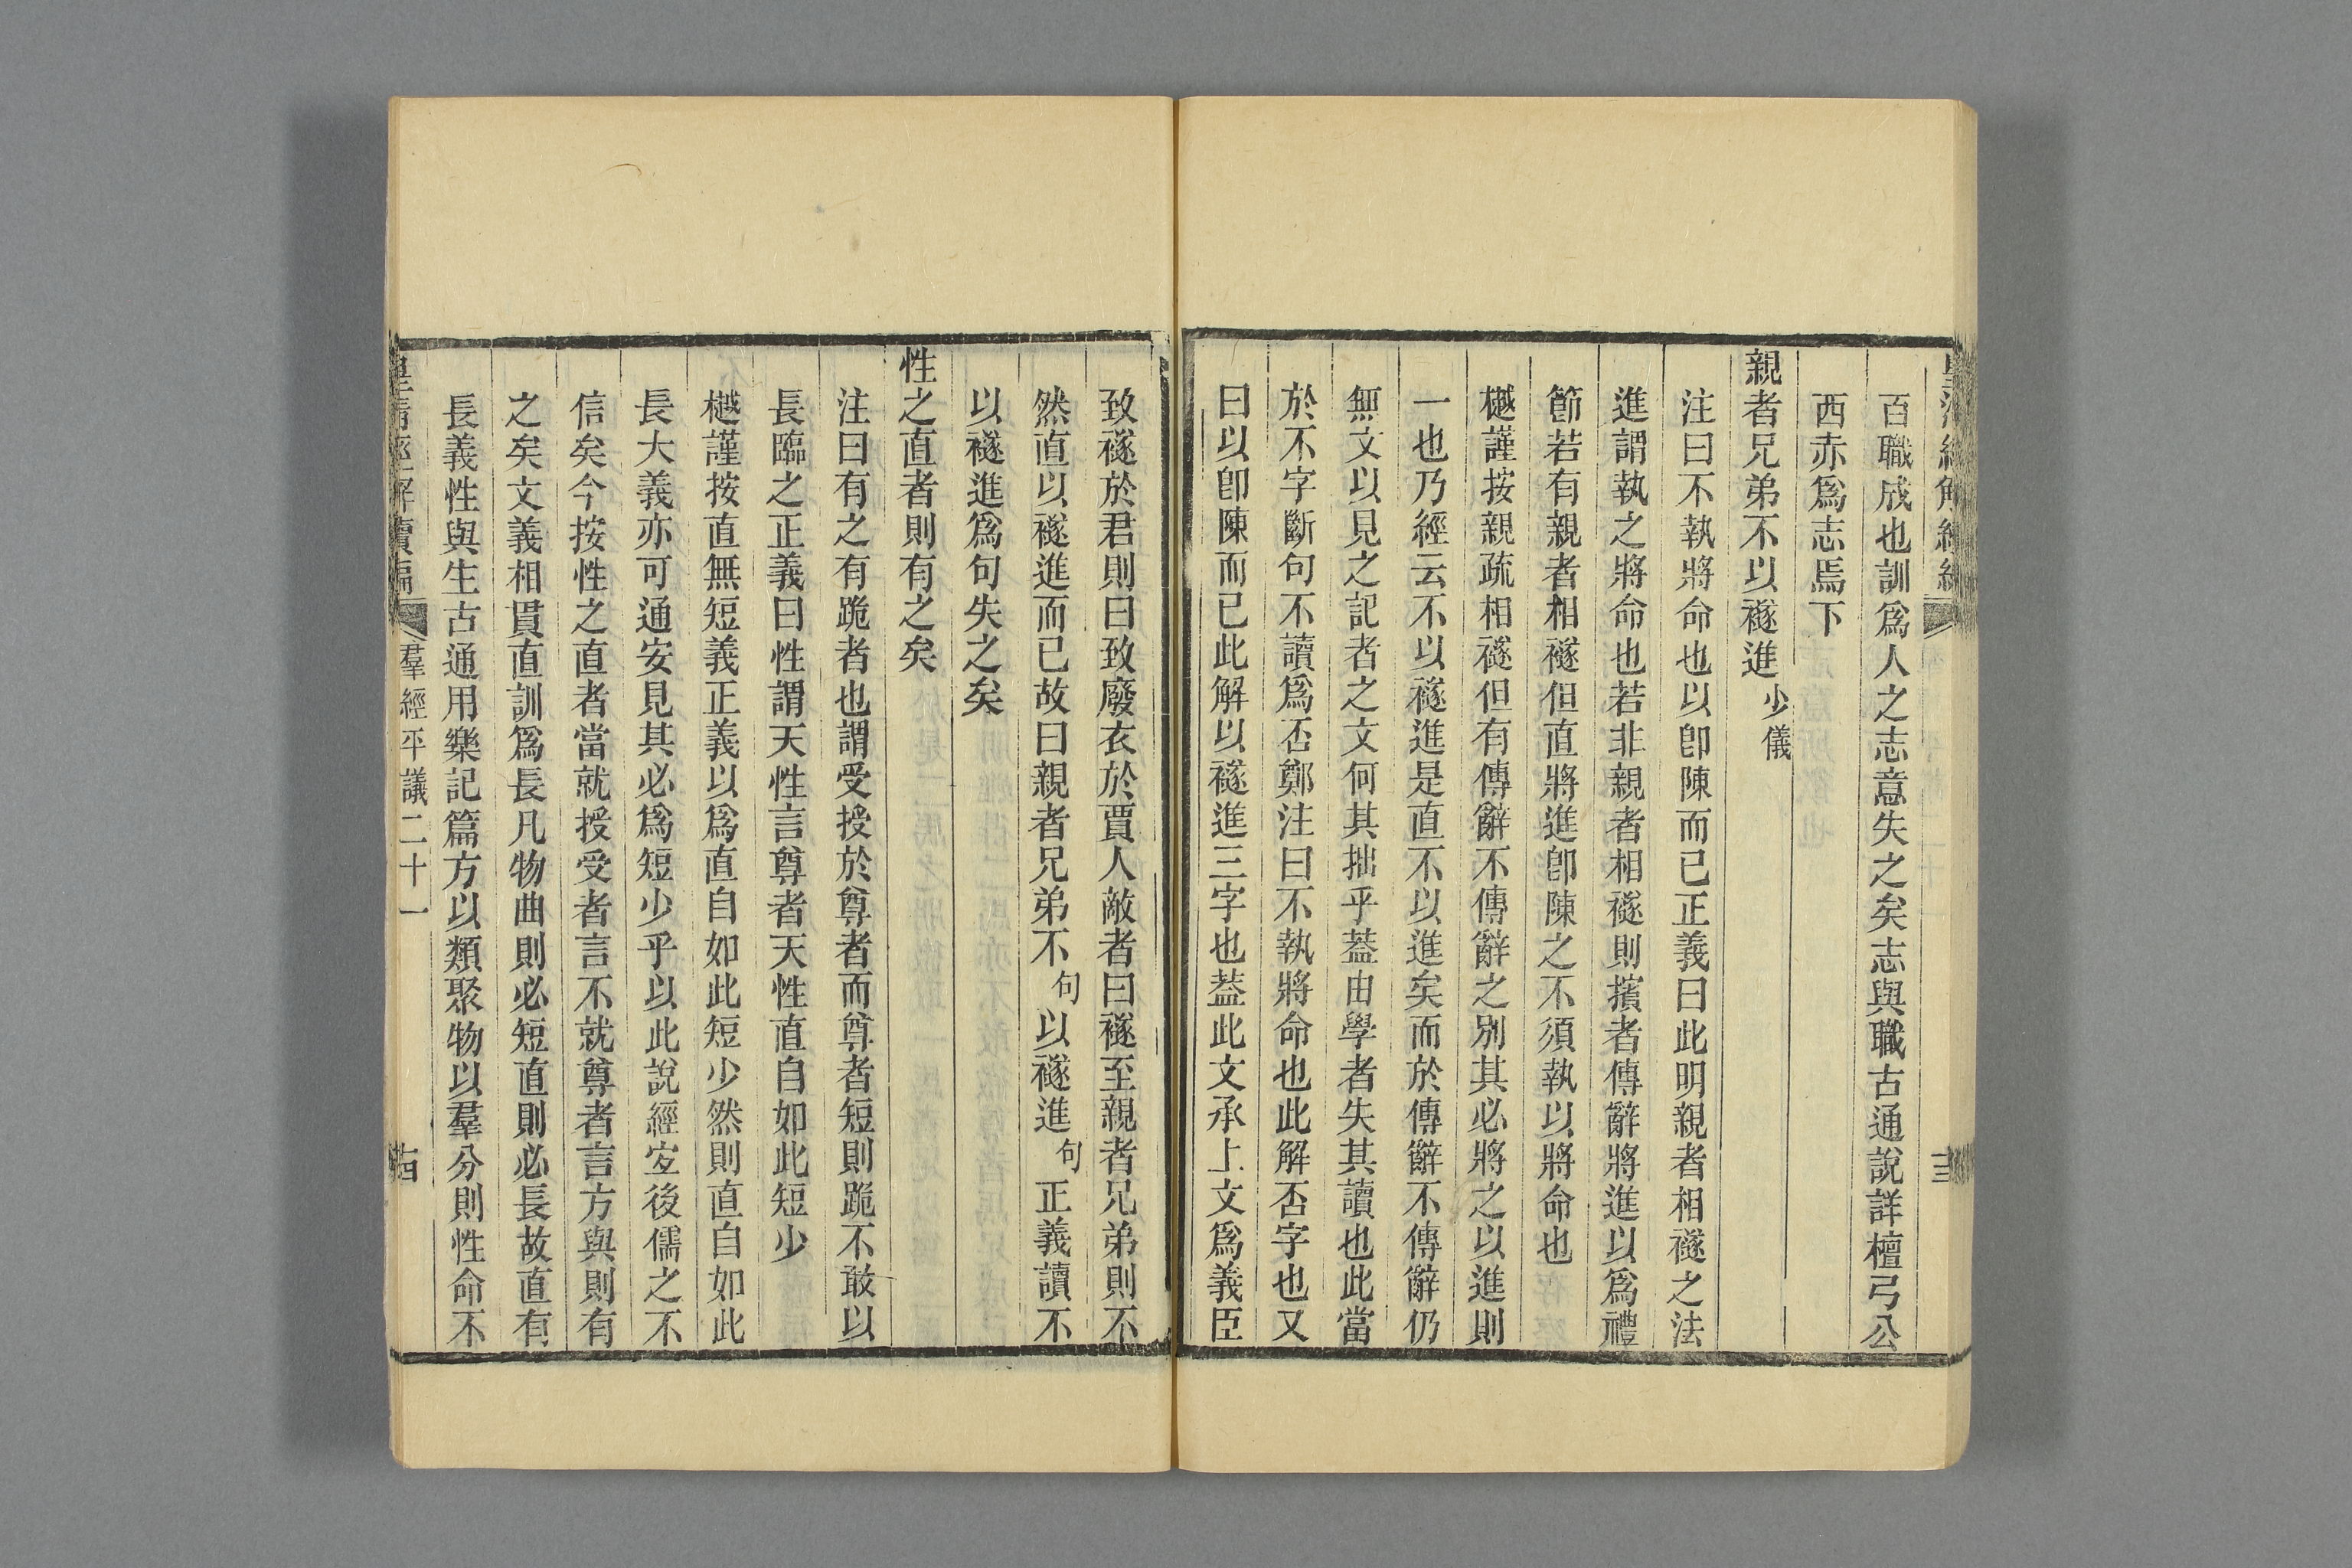 百職成也訓爲人之志意失之矣志與職古通說詳檀弓公
西赤爲志焉下
親者兄弟不以襚進少儀
注曰不執將命也以卽陳而已正義曰此明親者相襚之法
進謂執之將命也若非親者相襚則擯者傳辭將進以爲禮
節若有親者相襚但直將進卽陳之不須執以將命也
樾謹按親疏相襚但有傳辭不傳辭之別其必將之以進則
一也乃經云不以襚進是直不以進矣而於傳辭不傳辭仍
無文以見之記者之文何其拙乎葢由學者失其讀也此當
於不字斷句不讀爲否鄭注曰不執將命也此解否字也又
曰以卽陳而已此解以襚進三字也葢此文承上文爲義臣
致襚於君則曰致廢衣於賈人敵者曰襚至親者兄弟則不
然直以襚進而已故曰親者兄弟不句以襚進句正義讀不
以襚進爲句失之矣
性之直者則有之矣
注曰有之有跪者也謂受授於尊者而尊者短則跪不敢以
長臨之正義曰性謂天性言尊者天性直自如此短少
樾謹按直無短義正義以爲直自如此短少然則直自如此
長大義亦可通安見其必爲短少乎以此說經宐後儒之不
信矣今按性之直者當就授受者言不就尊者言方與則有
之矣文義相貫直訓爲長凡物曲則必短直則必長故直有
長義性與生古通用樂記篇方以類聚物以羣分則性命不
皇淸經解續編 羣經平議二十一 十四